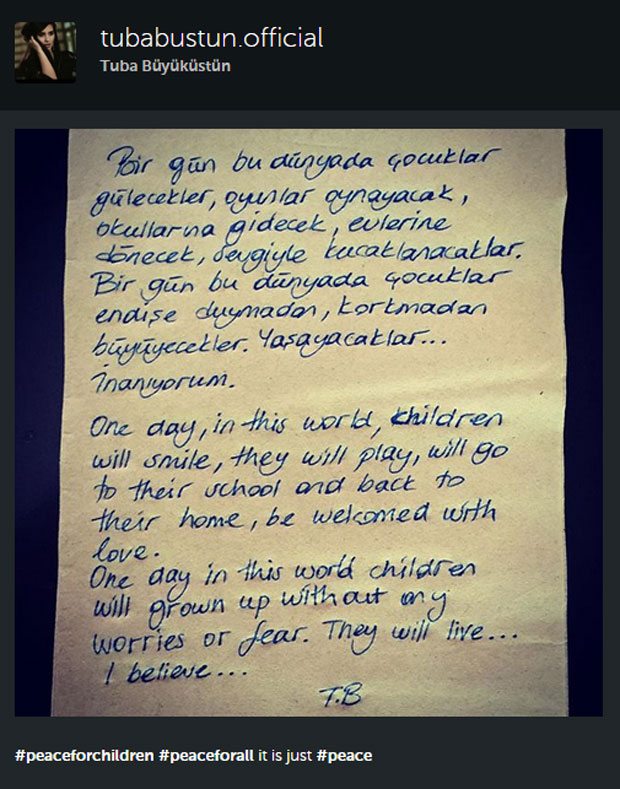 tubabustun.official
Tuba Büyüküstün
Bir gün bu dünyada çocuklar
gülecekler, oyunlar oynayacak,
okullarına gidecek, evlerine
dönecek, sevgiyle kucaklanacaklar.
Bir gün bu dünyada çocuklar
endişe duymadan, korkmadan
büyüyecekler. Yaşayacaklar...
İnanıyorum.
One day, in this world, children
will smile, they will play, will go
to their school and back to
their home, be welcomed with
love.
One day in this world children
will grown up without any
worries or fear. They will live...
I believe...
T.B
#peaceforchildren #peaceforall it is just #peace